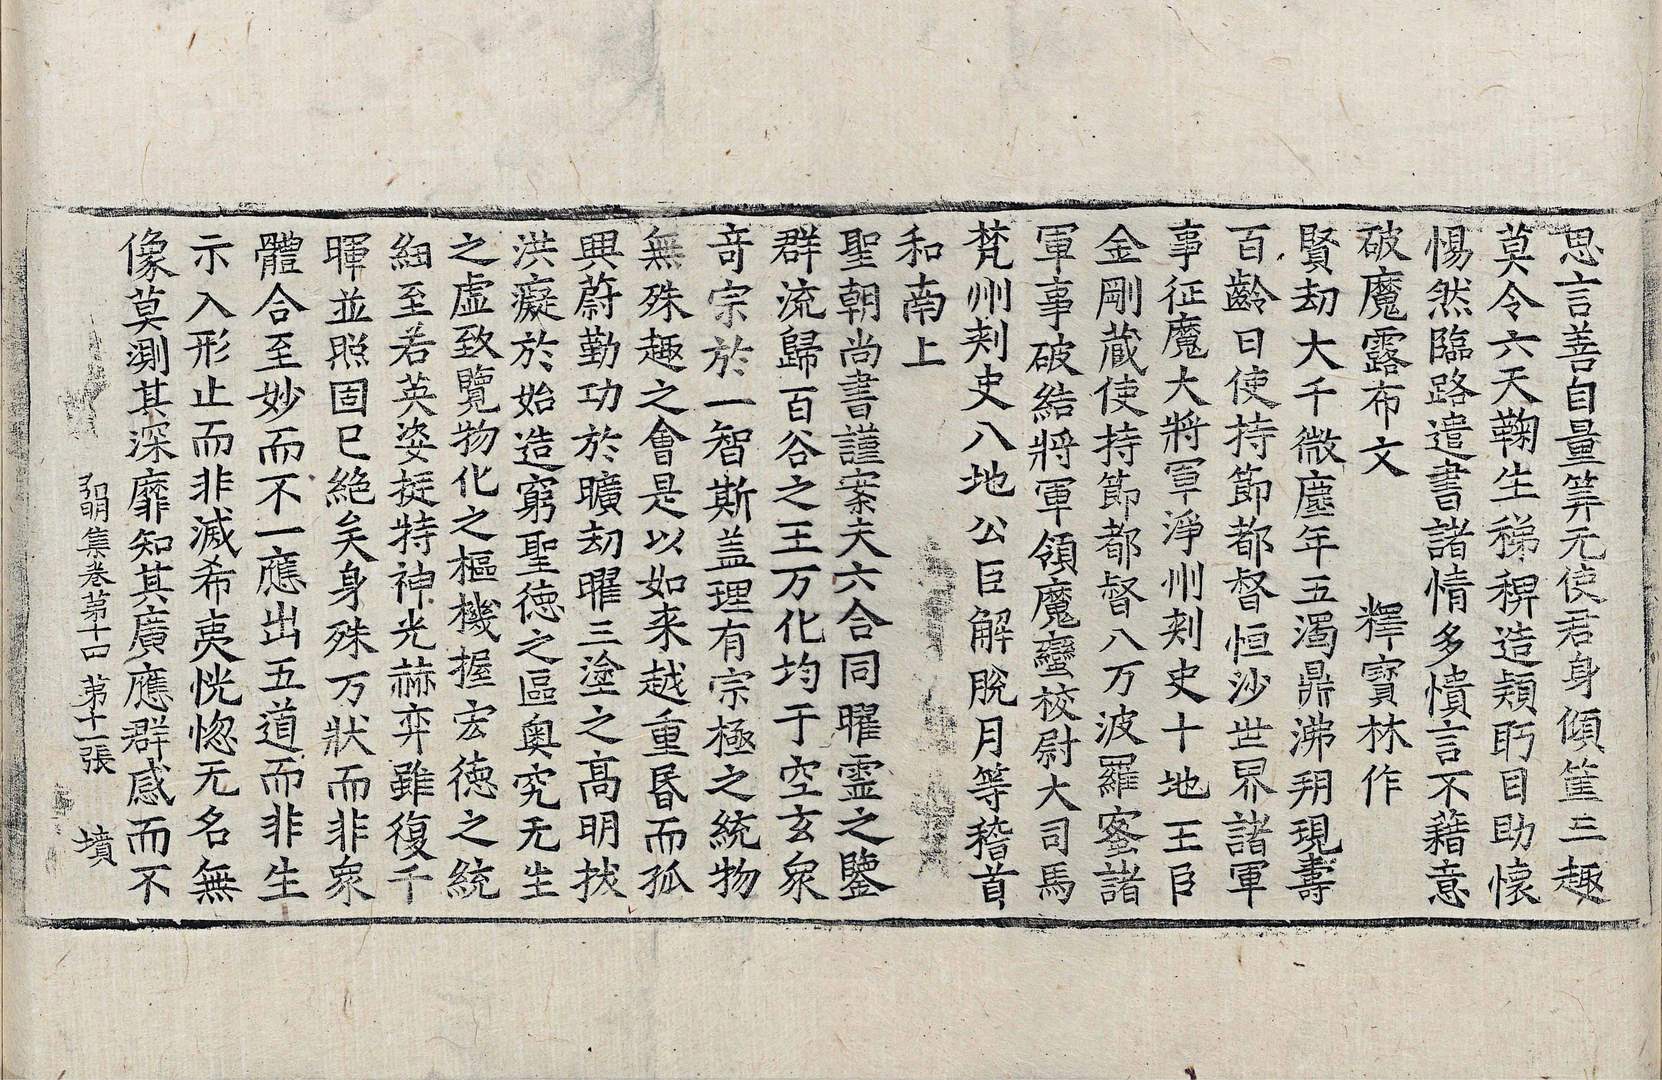 思言善自量筭无使君身傾筐三趣
莫令六天鞠生稊稗造穎眄目助懷
惕然臨路遣書諸情多憒言不藉意
破魔露布文　釋寶林作
賢劫大千微塵年五濁鼎沸朔現壽
百齡日使持節都督恒沙世界諸軍
事征魔大將軍淨州刺史十地王臣
金剛藏使持節都督八万波羅蜜諸
軍事破結將軍領魔蠻校尉大司馬
梵州刺史八地公臣解脫月等稽首
和南上
聖朝尚書謹案夫六合同曜靈之鑒
群流歸百谷之王万化均于空玄衆
竒宗於一智斯盖理有宗極之統物
無殊趣之會是以如来越重昬而孤
興蔚勤功於曠劫曜三塗之高明拔
洪癡於始造窮聖徳之區奧究无生
之虛致覽物化之樞機握宏徳之統
細至若英姿挺特神光赫弈雖復千
暉並照固已絶矣身殊万狀而非衆
體合至妙而不一應出五道而非生
示入形止而非滅希夷恍惚无名無
像莫測其深靡知其廣應群感而不
弘明集卷第十四　第十一張　墳